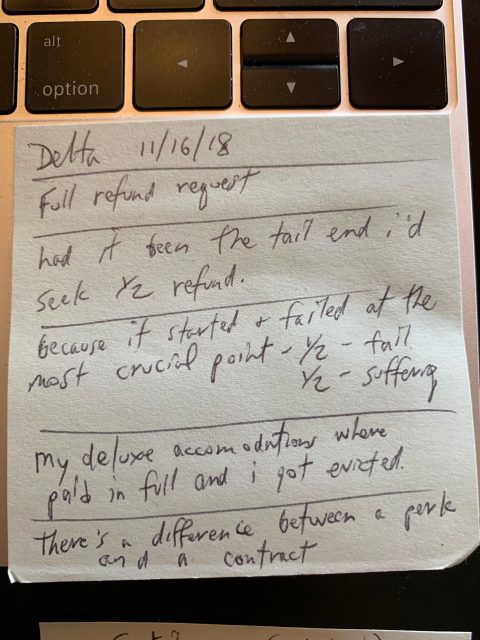 alt
option
◀
▲
▼
▶
Delta 11/16/18
Full refund request
had it been the tail end i'd
seek 1/2 refund.
because it started & failed at the
most crucial point - 1/2 - fail
1/2 - suffering
my deluxe accomodations where
paid in full and i got evicted.
There's a difference between a perk
and a contract